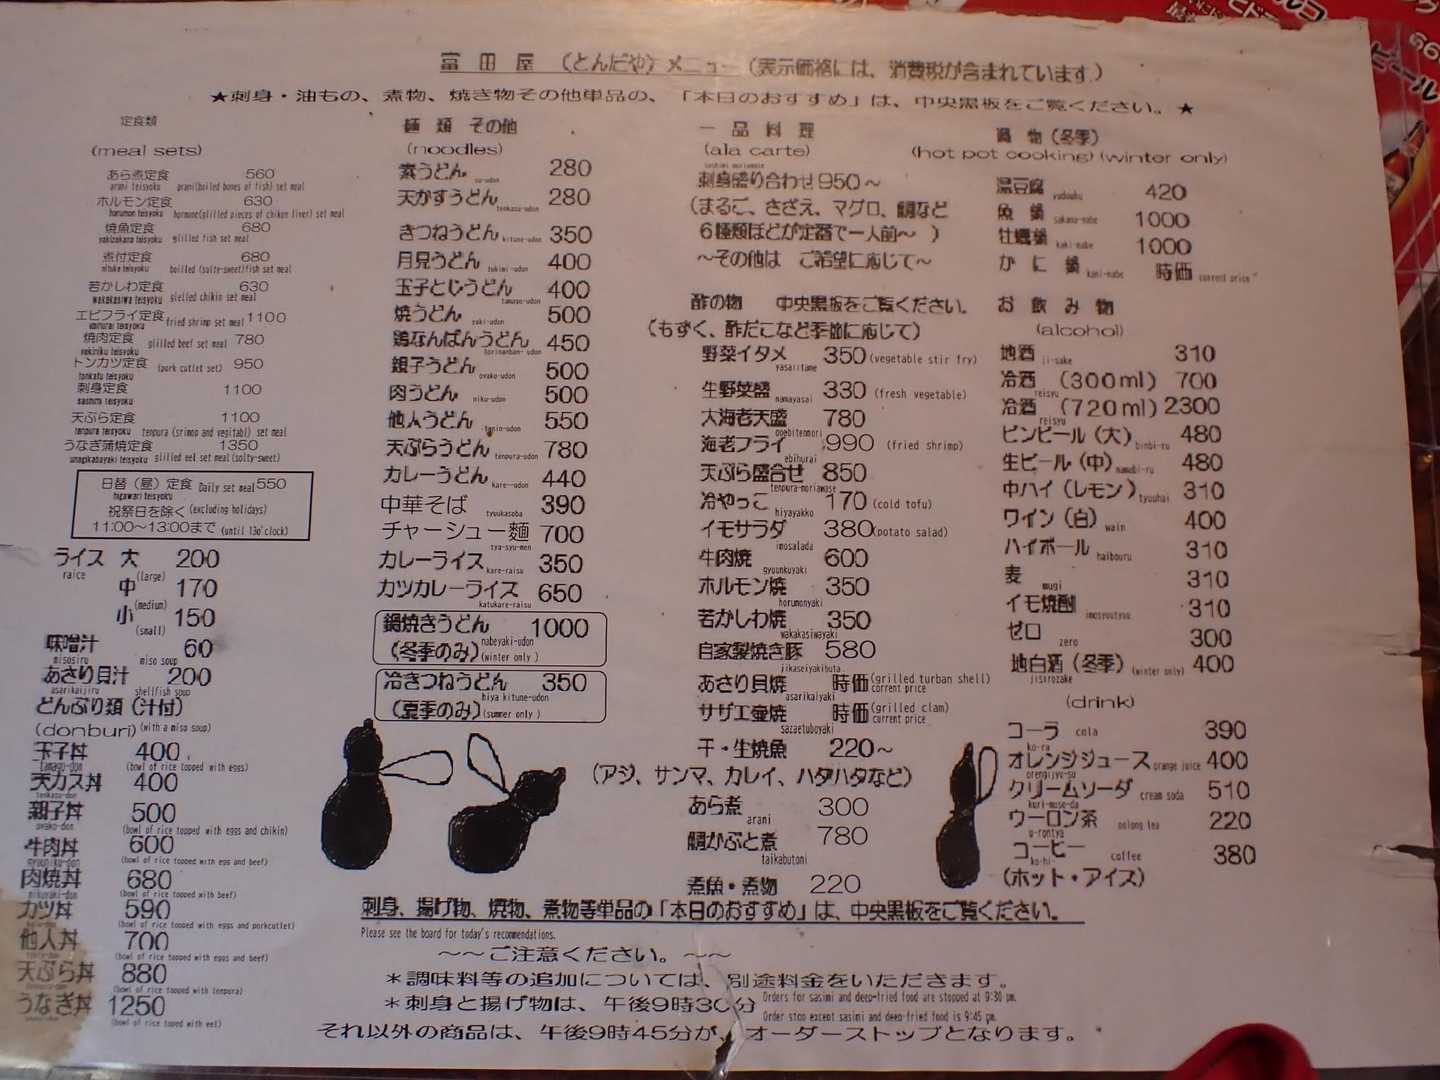 富田屋 (とんだや) メニュー (表示価格には、消費税が含まれています)
★刺身・油もの、煮物、焼き物その他単品の、「本日のおすすめ」は、中央黒板をご覧ください。★
定食類
(meal sets)
あら煮定食 560
arani teisyoku prani(boiled bones of fish) set meal
ホルモン定食 630
horumon teisyoku hormone(glilled pieces of chiken liver) set meal
焼魚定食 680
yakizakana teisyoku glilled fish set meal
煮付定食 680
nituke teisyoku boilled (salty-sweet)fish set meal
若かしわ定食 630
wakakasiwa teisyoku glelled chikin set meal
エビフライ定食 fried shrimp set meal 1100
焼肉定食 780
yakiniku teisyoku glilled beef set meal
トンカツ定食 (pork cutlet set) 950
tonkatu teisyoku
刺身定食 1100
sashimi teisyoku
天ぷら定食 1100
tenpura teisyoku tenpura (srimop and vegitabl) set meal
うなぎ蒲焼定食 1350
unagikabayaki teisyoku glilled eel set meal (solty-sweet)
日替(昼)定食 Daily set meal 550
higawari teisyoku
祝祭日を除く (excluding holidays)
11:00~13:00まで (until 13o'clock)
ライス 大 200
raice (large)
中 170
(medium)
小 150
(small)
味噌汁 60
misosiru miso soup
あさり貝汁 200
asarikaijiru shellfish soup
どんぶり類 (汁付)
(donburi) (with a miso soup)
玉子丼 400
tamago-don (bowl of rice topped with eggs)
天カス丼 400
tenkasu-don
親子丼 500
oyako-don (bowl of rice topped with eggs and chikin)
牛肉丼 600
gyuuniku-don (bowl of rice topped with egg and beef)
肉焼丼 680
nikuyaki-don (bowl of rice topped with beef)
カツ丼 590
(bowl of rice topped with eggs and porkcutlet)
他人丼 700
(bowl of rice topped with egg and beef)
天ぷら丼 880
(bowl of rice topped with tenpura)
うなぎ丼 1250
(bowl of rice toped with eel)
麺類 その他
(noodles)
素うどん 280
su-udon
天かすうどん 280
tenkasu-udon
きつねうどん 350
kitune-udon
月見うどん 400
tukimi-udon
玉子とじうどん 400
tamago-udon
焼うどん 500
yaki-udon
鶏なんばんうどん 450
torinanban-udon
親子うどん 500
oyako-udon
肉うどん 500
niku-udon
他人うどん 550
tanin-udon
天ぷらうどん 780
tenpura-udon
カレーうどん 440
kare-udon
中華そば 390
tyuukasoba
チャーシュー麺 700
tya-syu-men
カレーライス 350
kare-raisu
カツカレーライス 650
katukare-raisu
鍋焼きうどん 1000
nabeyaki-udon
(冬季のみ) (winter only)
冷きつねうどん 350
hiya kitune-udon
(夏季のみ) (summer only)
一品料理
(ala carte)
sashimi moriawase
刺身盛り合わせ 950~
(まるご、さざえ、マグロ、鯛など
6種類ほどが定器で一人前~ )
~その他は ご希望に応じて~
酢の物 中央黒板をご覧ください。
(もずく、酢だこなど季節に応じて)
野菜イタメ 350 (vegetable stir fry)
yasaiitame
生野菜盛 330 (fresh vegetable)
namayasai
大海老天盛 780
ooebitenmori
海老フライ 990 (fried shrimp)
ebihurai
天ぷら盛合せ 850
tenpura-moriawase
冷やっこ 170 (cold tofu)
hiyayakko
イモサラダ 380 (potato salad)
imosalada
牛肉焼 600
gyuunkuyaki
ホルモン焼 350
horumonyaki
若かしわ焼 350
wakakasiwayaki
自家製焼き豚 580
jikaseiyakibuta
あさり貝焼 時価 (grilled turban shell)
asarikaiyaki current price
サザエ壷焼 時価 (grilled clam)
sazaetuboyaki current price
干・生焼魚 220~
(アジ、サンマ、カレイ、ハタハタなど)
あら煮 300
arani
鯛かぶと煮 780
taikabutoni
煮魚・煮物 220
鍋物 (冬季)
(hot pot cooking) (winter only)
湯豆腐 420
yudouhu
魚鍋 1000
sakana-nabe
牡蠣鍋 1000
kaki-nabe
かに鍋 時価
kani-nabe current price
お飲み物
(alcohol)
地酒 310
ji-sake
冷酒 (300ml) 700
reisyu
冷酒 (720ml) 2300
reisyu
ビンビール (大) 480
binbi-ru
生ビール (中) 480
namabi-ru
中ハイ (レモン) 310
tyuuhai
ワイン (白) 400
wain
ハイボール 310
haibouru
麦 310
mugi
イモ焼酎 310
imosyoutyuu
ゼロ 300
zero
地白酒 (冬季) (winter only) 400
jisirozake
(drink)
コーラ cola 390
ko-ra
オレンジジュース orange juice 400
orengijyu-su
クリームソーダ cream soda 510
kuri-muso-da
ウーロン茶 oolong tea 220
u-rontya
コーヒー coffee 380
ko-hi-
(ホット・アイス)
刺身、揚げ物、焼物、煮物等単品の「本日のおすすめ」は、中央黒板をご覧ください。
Please see the board for today's recomendations.
~~ご注意ください。~~
*調味料等の追加については、別途料金をいただきます。
*刺身と揚げ物は、午後9時30分 Orders for sasimi and deep-fried food are stopped at 9:30 pm.
Order stop except sasimi and deep-fried food is 9:45 pm.
それ以外の商品は、午後9時45分が、オーダーストップとなります。
ビール